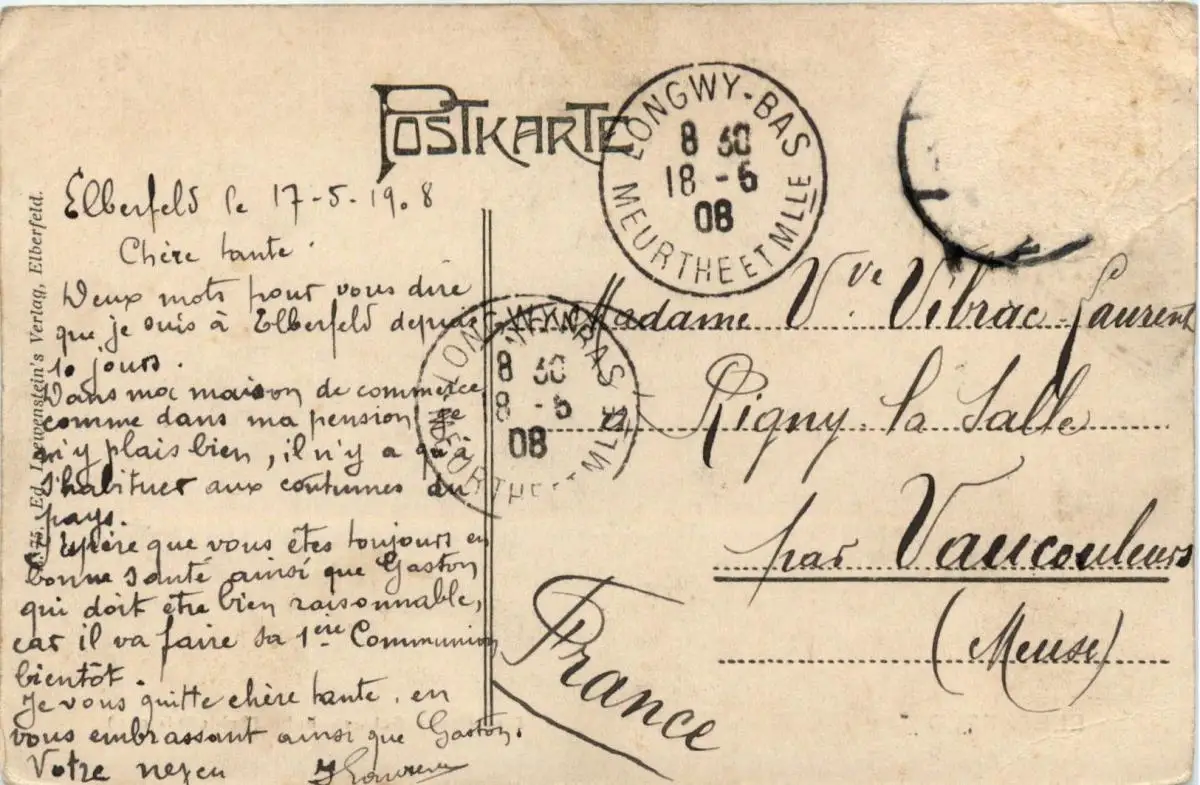 POSTKARTE
LONGWY-BAS
8 30
18 -5
08
MEURTHE ET MLLE
Elberfeld le 17-5-1908
Chère tante.
Deux mots pour vous dire
que je suis à Elberfeld depuis
10 jours.
Dans ma maison de commerce
comme dans ma pension je
m'y plais bien, il n'y a qu'à
s'habituer aux coutumes du
pays.
J'espère que vous êtes toujours en
bonne santé ainsi que Gaston
qui doit être bien raisonnable,
car il va faire sa 1ère Communion
bientôt.
Je vous quitte chère tante, en
vous embrassant ainsi que Gaston.
Votre neveu
Ed. Loewenstein's Verlag, Elberfeld.
LONGWY-BAS
8 30
8 -5
08
MEURTHE MLLE
Madame Vve Vibrac-Laurent
à Rigny la Salle
par Vaucouleurs
(Meuse)
France